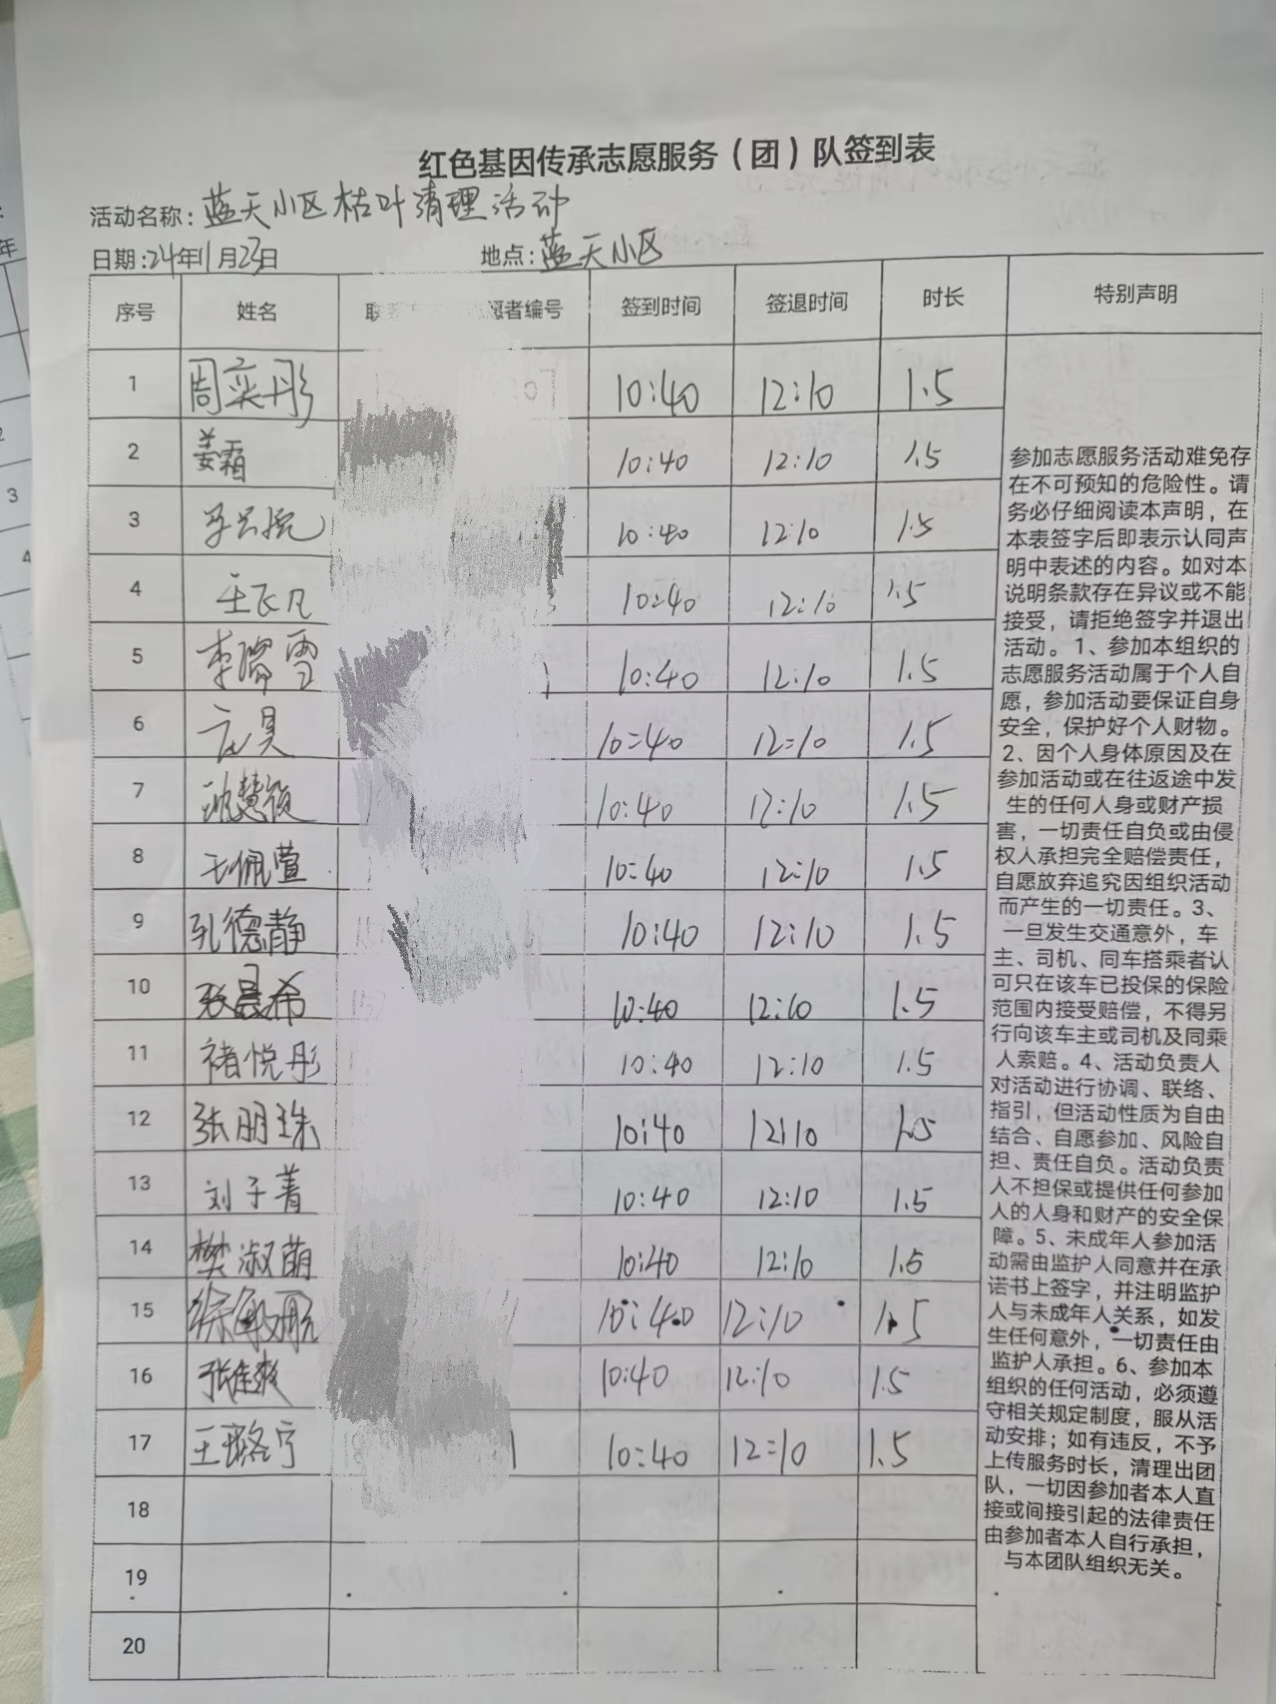 红色基因传承志愿服务（团）队签到表
活动名称：蓝天小区枯叶清理活动
日期：24年11月23日 地点：蓝天小区
序号 姓名 联 愿者编号 签到时间 签退时间 时长 特别声明
1 周奕彤 10:40 12:10 1.5
2 姜霜 10:40 12:10 1.5
3 10:40 12:10 1.5
4 王飞凡 10:40 12:10 1.5
5 李瑞雪 10:40 12:10 1.5
6 10:40 12:10 1.5
7 10:40 12:10 1.5
8 王佩萱 10:40 12:10 1.5
9 孔德静 10:40 12:10 1.5
10 张晨希 10:40 12:10 1.5
11 褚悦彤 10:40 12:10 1.5
12 张明珠 10:40 12:10 1.5
13 刘子菁 10:40 12:10 1.5
14 樊淑萌 10:40 12:10 1.5
15 10:40 12:10 1.5
16 张佳爽 10:40 12:10 1.5
17 王璐宁 10:40 12:10 1.5
18
19
20
参加志愿服务活动难免存
在不可预知的危险性。请
务必仔细阅读本声明，在
本表签字后即表示认同声
明中表述的内容。如对本
说明条款存在异议或不能
接受，请拒绝签字并退出
活动。1、参加本组织的
志愿服务活动属于个人自
愿，参加活动要保证自身
安全，保护好个人财物。
2、因个人身体原因及在
参加活动或在往返途中发
生的任何人身或财产损
害，一切责任自负或由侵
权人承担完全赔偿责任，
自愿放弃追究因组织活动
而产生的一切责任。3、
一旦发生交通意外，车
主、司机、同车搭乘者认
可只在该车已投保的保险
范围内接受赔偿，不得另
行向该车主或司机及同乘
人索赔。4、活动负责人
对活动进行协调、联络、
指引，但活动性质为自由
结合、自愿参加、风险自
担、责任自负。活动负责
人不担保或提供任何参加
人的人身和财产的安全保
障。5、未成年人参加活
动需由监护人同意并在承
诺书上签字，并注明监护
人与未成年人关系，如发
生任何意外，一切责任由
监护人承担。6、参加本
组织的任何活动，必须遵
守相关规定制度，服从活
动安排；如有违反，不予
上传服务时长，清理出团
队，一切因参加者本人直
接或间接引起的法律责任
由参加者本人自行承担，
与本团队组织无关。